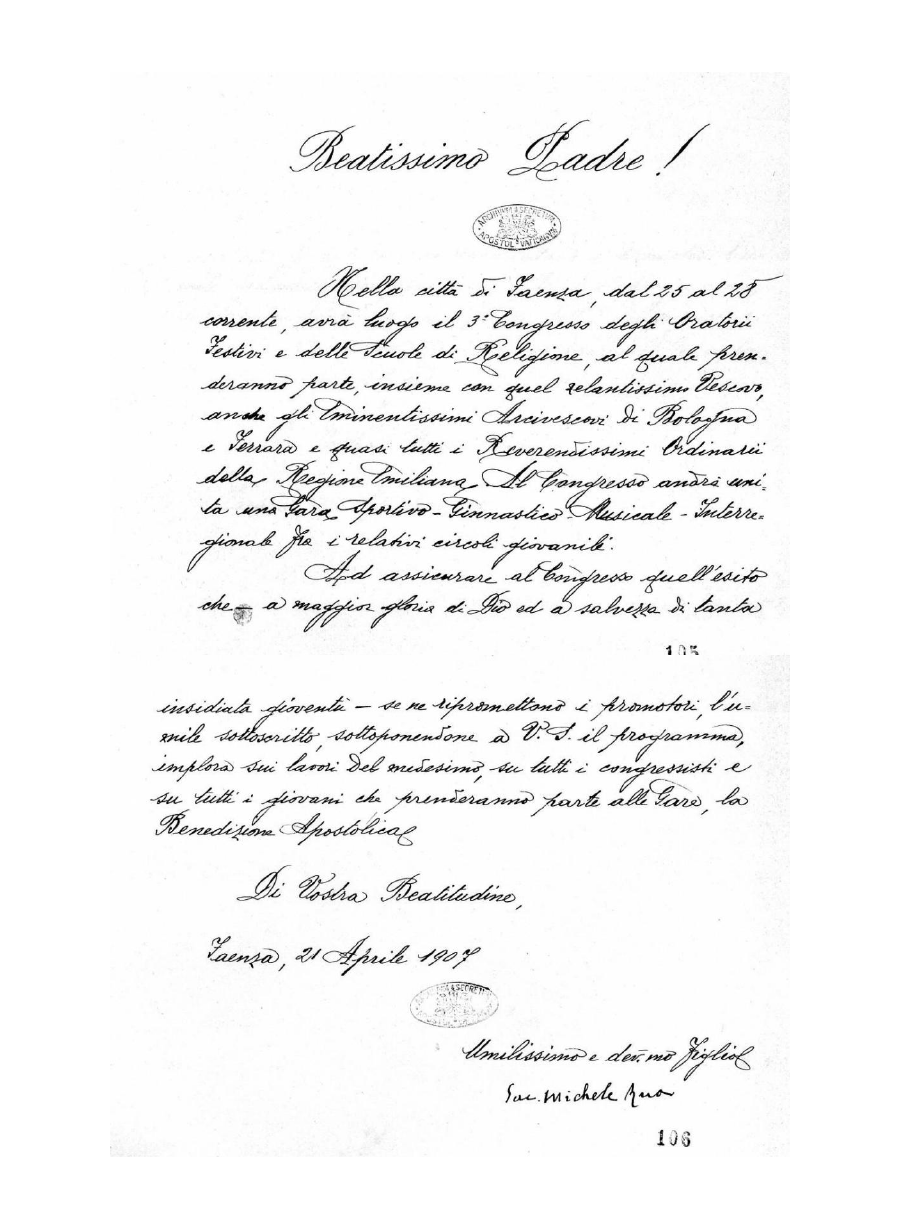 Beatissimo Padre!
ARCHIVUM SECRETUM
APOSTOL. VATICANUM
Nella città di Faenza, dal 25 al 28
corrente, avrà luogo il 3° Congresso degli Oratorii
Festivi e delle Scuole di Religione, al quale pren-
deranno parte, insieme con quel zelantissimo Vescovo,
anche gli Eminentissimi Arcivescovi di Bologna
e Ferrara e quasi tutti i Reverendissimi Ordinarii
della Regione Emiliana. Al Congresso andrà uni-
ta una Gara Sportivo-Ginnastico-Musicale-Interre-
gionale fra i relativi circoli giovanili.
Ad assicurare al Congresso quell'esito
che – a maggior gloria di Dio ed a salvezza di tanta
105
insidiata gioventù – se ne ripromettono i promotori, l'u-
mile sottoscritto, sottoponendone a V. S. il programma,
implora sui lavori del medesimo, su tutti i congressisti e
su tutti i giovani che prenderanno parte alle Gare, la
Benedizione Apostolica
Di Vostra Beatitudine,
Faenza, 21 Aprile 1907
ARCHIVUM SECRETUM
APOSTOL. VATICANUM
Umilissimo e dev.mo Figlio
Sac. Michele Rua
106